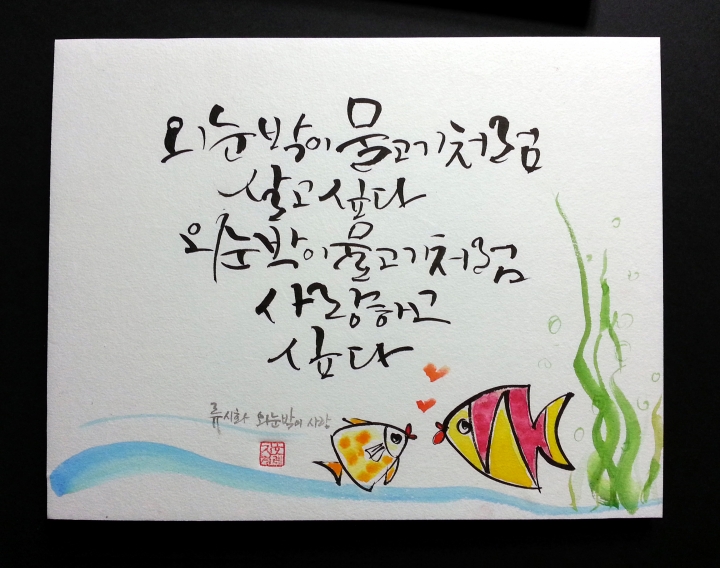 외눈박이물고기처럼
살고싶다
외눈박이물고기처럼
사랑하고
싶다
류시화 외눈박이 사랑